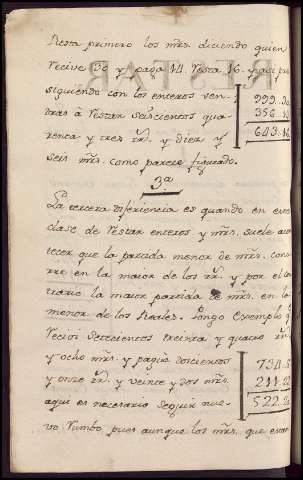 Resta primero los mrs. diciendo quien
Recive 30 y paga 14 resta 16. y assi pro
siguiendo con los enteros ven-
dras à restar seiscientos qua-
renta y tres rr. y diez y
seis mrs. como parece figurado.
999.30
356.14
643.16
3a
La tercera diferiencia es quando en esta
clase de restar enteros y mrs. suele acon
tecer que la partida menor de mrs. concu
rre en la maior de los rr. y por el con
trario la maior partida de mrs. en la
menor de los Reales. Pongo Exemplo q
Recivi setecientos treinta y quatro rr.
y ocho mrs. y paguè doscientos
y onze rr. y veinte y dos mrs.
aqui es necesario seguir nue-
vo rumbo pues aunque los mrs. que estan
734.8
211.22
522.20